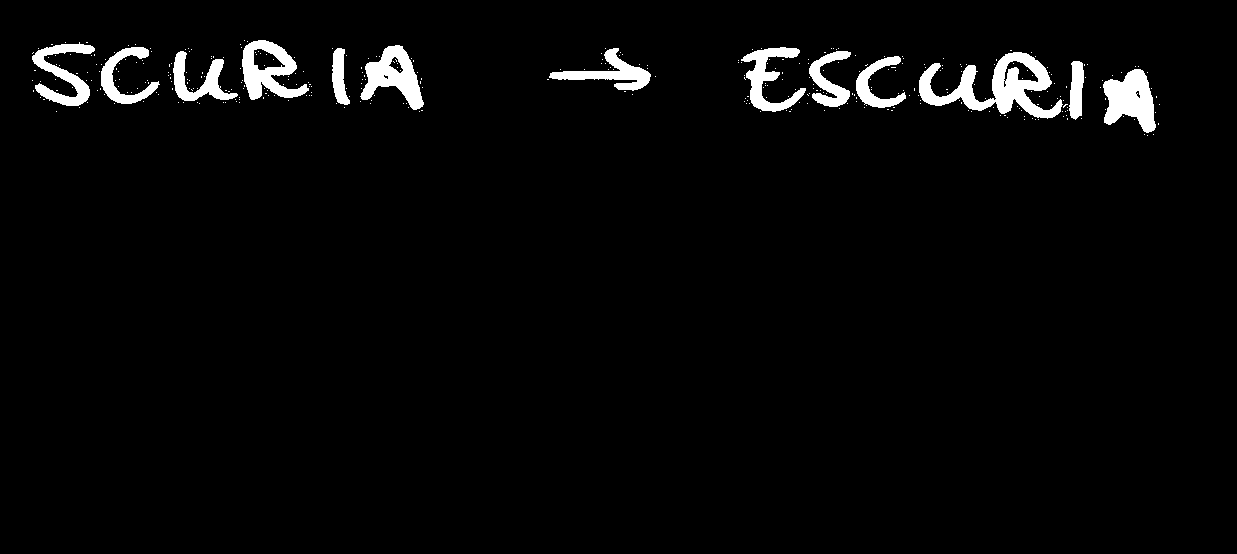 SCURIA → ESCURIA